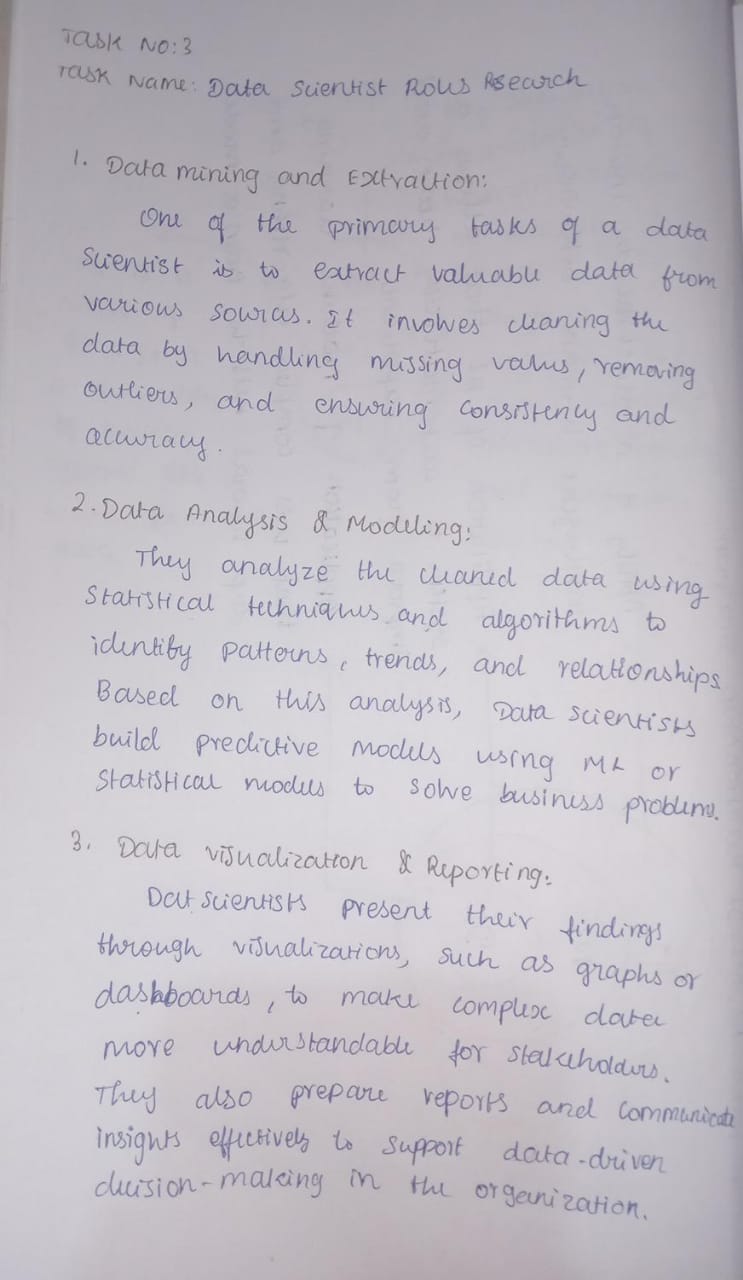 Task No:3
Task Name: Data Scientist Roles Research
1. Data mining and Extraction:
One of the primary tasks of a data
scientist is to extract valuable data from
various sources. It involves cleaning the
data by handling missing values, removing
outliers, and ensuring consistency and
accuracy.
2. Data Analysis & Modeling:
They analyze the cleaned data using
statistical techniques and algorithms to
identify patterns, trends, and relationships
Based on this analysis, Data scientists
build predictive models using ML or
statistical models to solve business problems.
3. Data visualization & Reporting:
Dat scientists present their findings
through visualizations, such as graphs or
dashboards, to make complex data
more understandable for stakeholders.
They also prepare reports and communicate
insights effectively to support data-driven
decision-making in the organization.